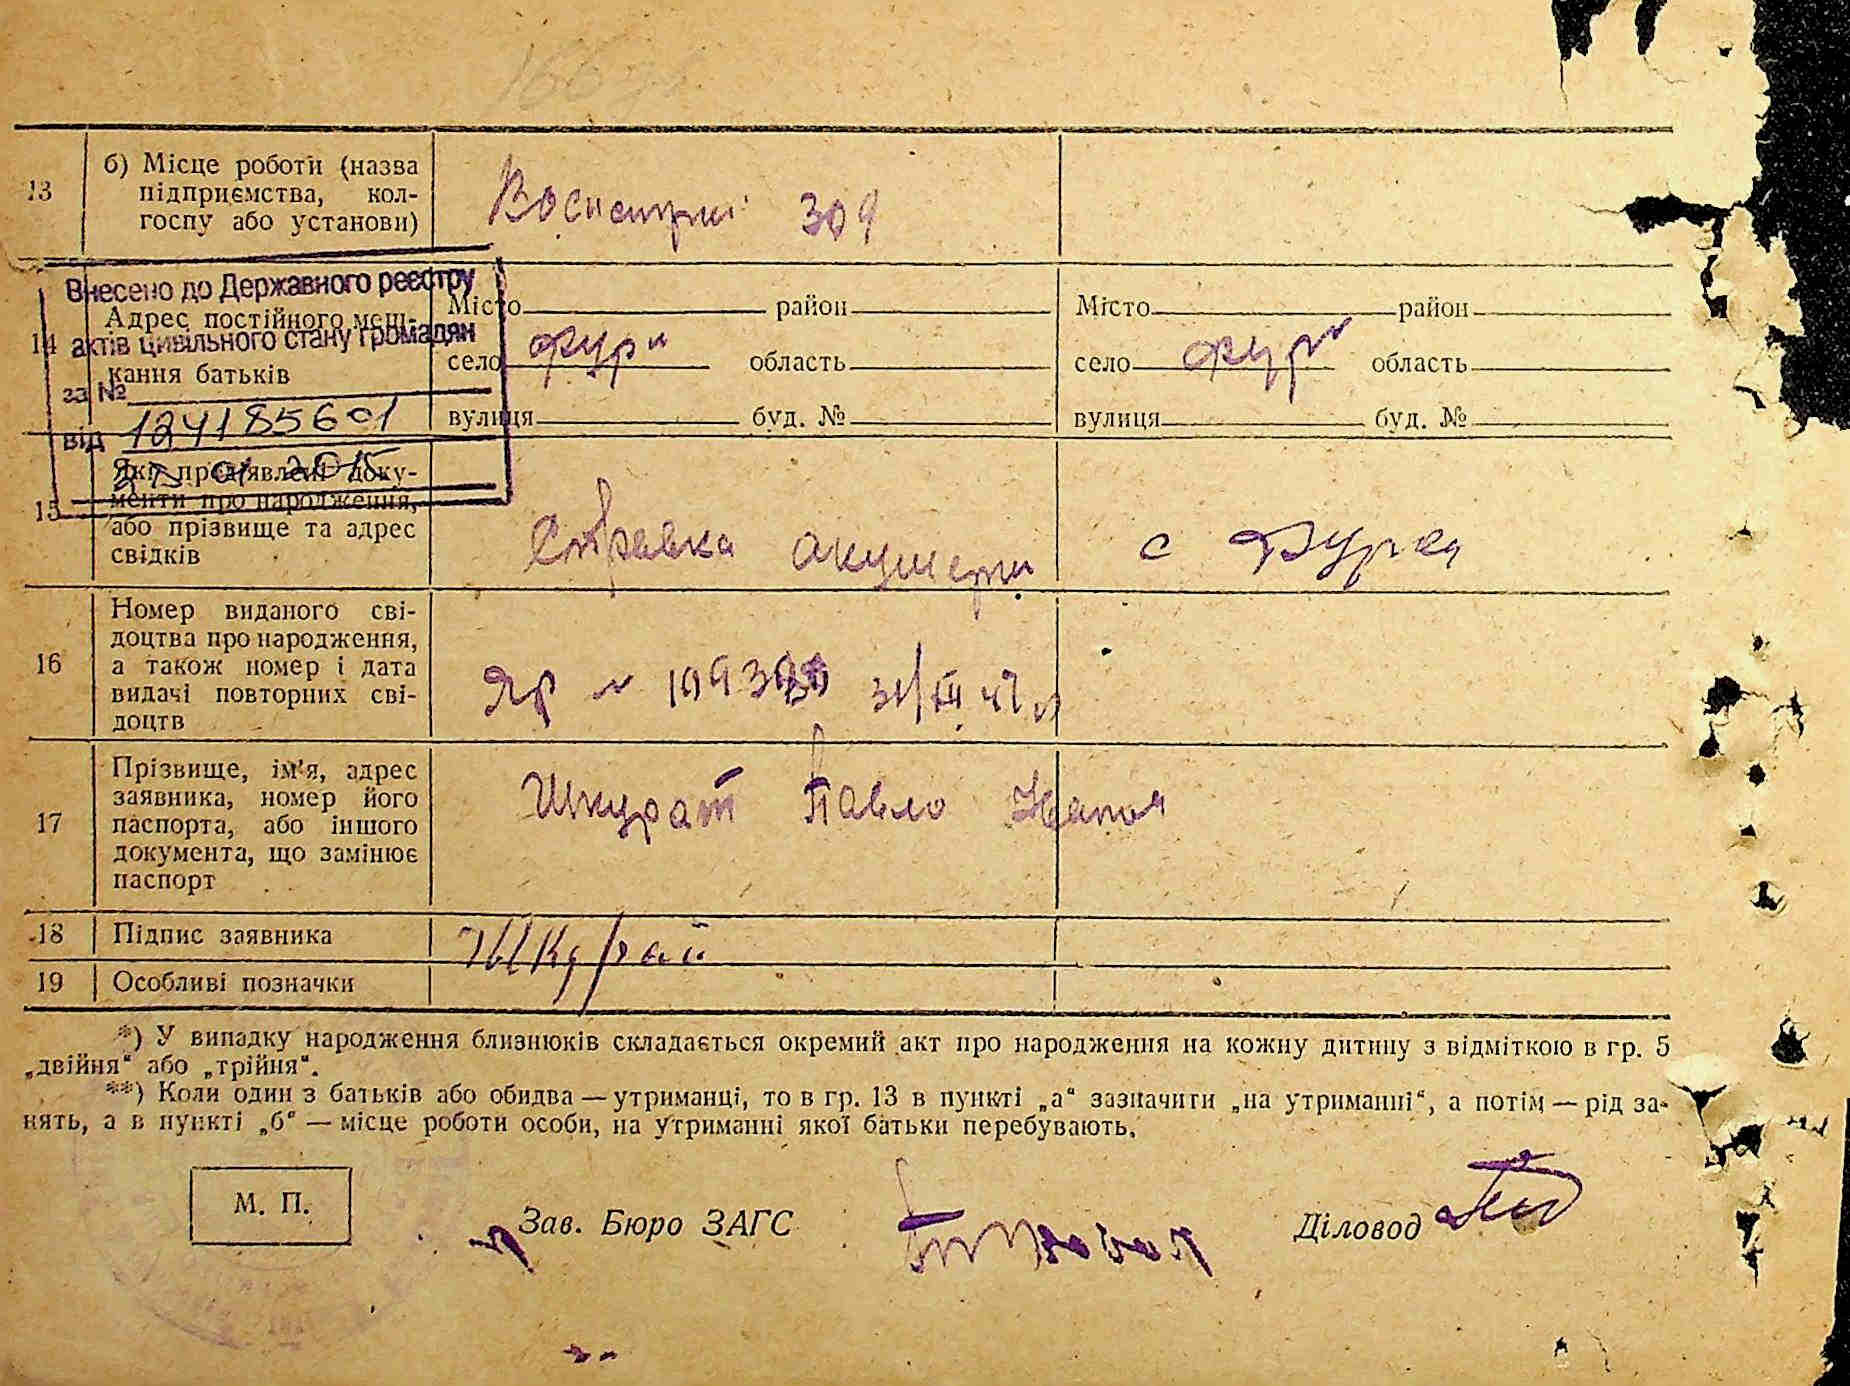 13
б) Місце роботи (назва
підприємства, кол-
госпу або установи)
309
Внесено до Державного реєстру
актів цивільного стану громадян
за №
124185601
від
14
Адрес постійного меш-
кання батьків
Місто район
село Фури область
вулиця буд. №
Місто район
село Фури область
вулиця буд. №
15
Які пред'явлені доку-
менти про народження,
або прізвище та адрес
свідків
Справка акушерки с Фурса
16
Номер виданого сві-
доцтва про народження,
а також номер і дата
видачі повторних сві-
доцтв
31/III 47
17
Прізвище, ім'я, адрес
заявника, номер його
паспорта, або іншого
документа, що замінює
паспорт
Шкурат Павло
18
Підпис заявника
Шкурат
19
Особливі позначки
*) У випадку народження близнюків складається окремий акт про народження на кожну дитину з відміткою в гр. 5
„двійня“ або „трійня“.
**) Коли один з батьків або обидва — утриманці, то в гр. 13 в пункті „а“ зазначити „на утриманні“, а потім — рід за-
нять, а в пункті „б“ — місце роботи особи, на утриманні якої батьки перебувають.
М. П.
Зав. Бюро ЗАГС
Діловод